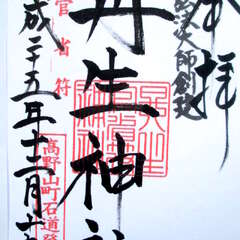 奉拝
弘法大師創建
丹生神社
官省符
高野山町石道登
平成二十五年十二月十